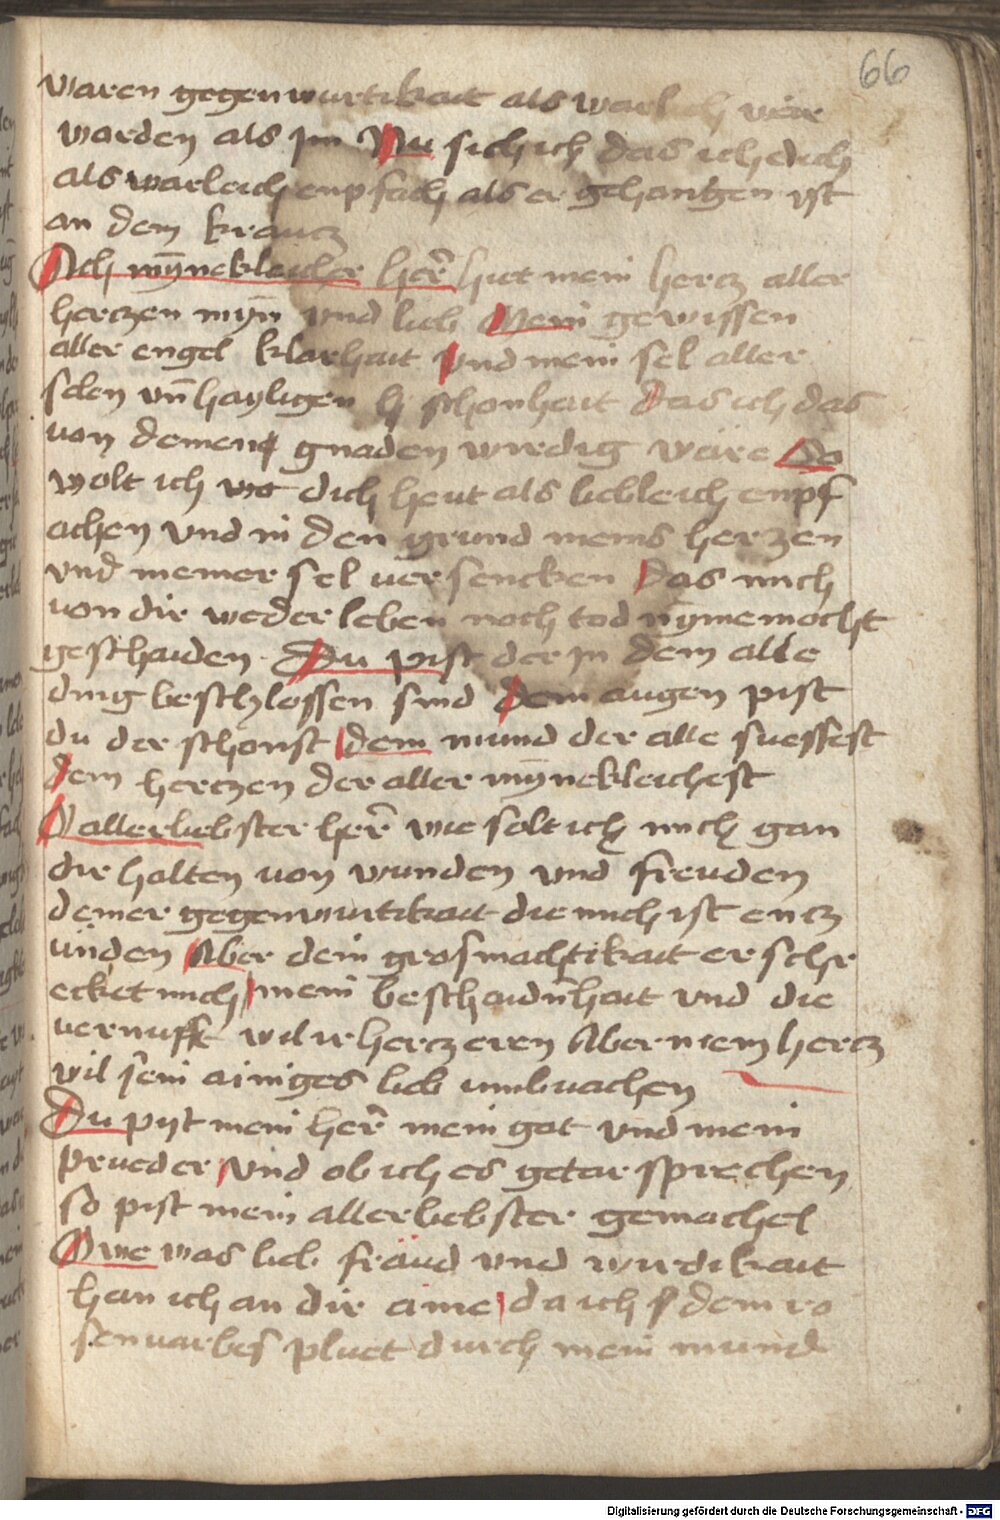 66
waren gegenwurtikait als warlich wër
warden als Im Nu sich ich das ich dich
als warleich enpfach als er gehangen ist
an dem krawcz
Ach mȳnekleicher her̄ hiet mein hercz aller
herczen mȳn vnd lieb Mein gewissen
aller engel klarhait Vnd mein sel aller
selen vn̄ hayligen schonhait Das ich das
von deinen gnaden wirdig wäre So
wolt ich dich heut als liebleich empf
achen vnd in den grund meins herczen
vnd meiner sel versencken Das mich
von dir weder leben noch tod nȳme mocht
geschaiden. Du pist der In dem alle
ding beschlossen sind Dem augen pist
du der schonst dem mund der alle suessest
Dem herczen der aller mȳnekleichest
O allerliebster her̄ wie solt ich mich gan
dir halten von wunden vnd freuden
deiner gegenwurtikait die mich ist encz
ünden Aber dein grosmachtikait erschr
ecket mich mein beschaidn̄hait vnd die
vernufft wil ir hercz eren Aber mein hercz
wil sein ainiges lieb umbvachen
Du pist mein her̄ mein got vnd mein
prueder Vnd ob ich es getar sprechen
so pist mein allerliebster gemachel
O we was lieb fräud vnd wirdikait
han ich an dir aine da ich dein ro
senvarbes pluet durch mein mund
Digitalisierung gefördert durch die Deutsche Forschungsgemeinschaft - DFG